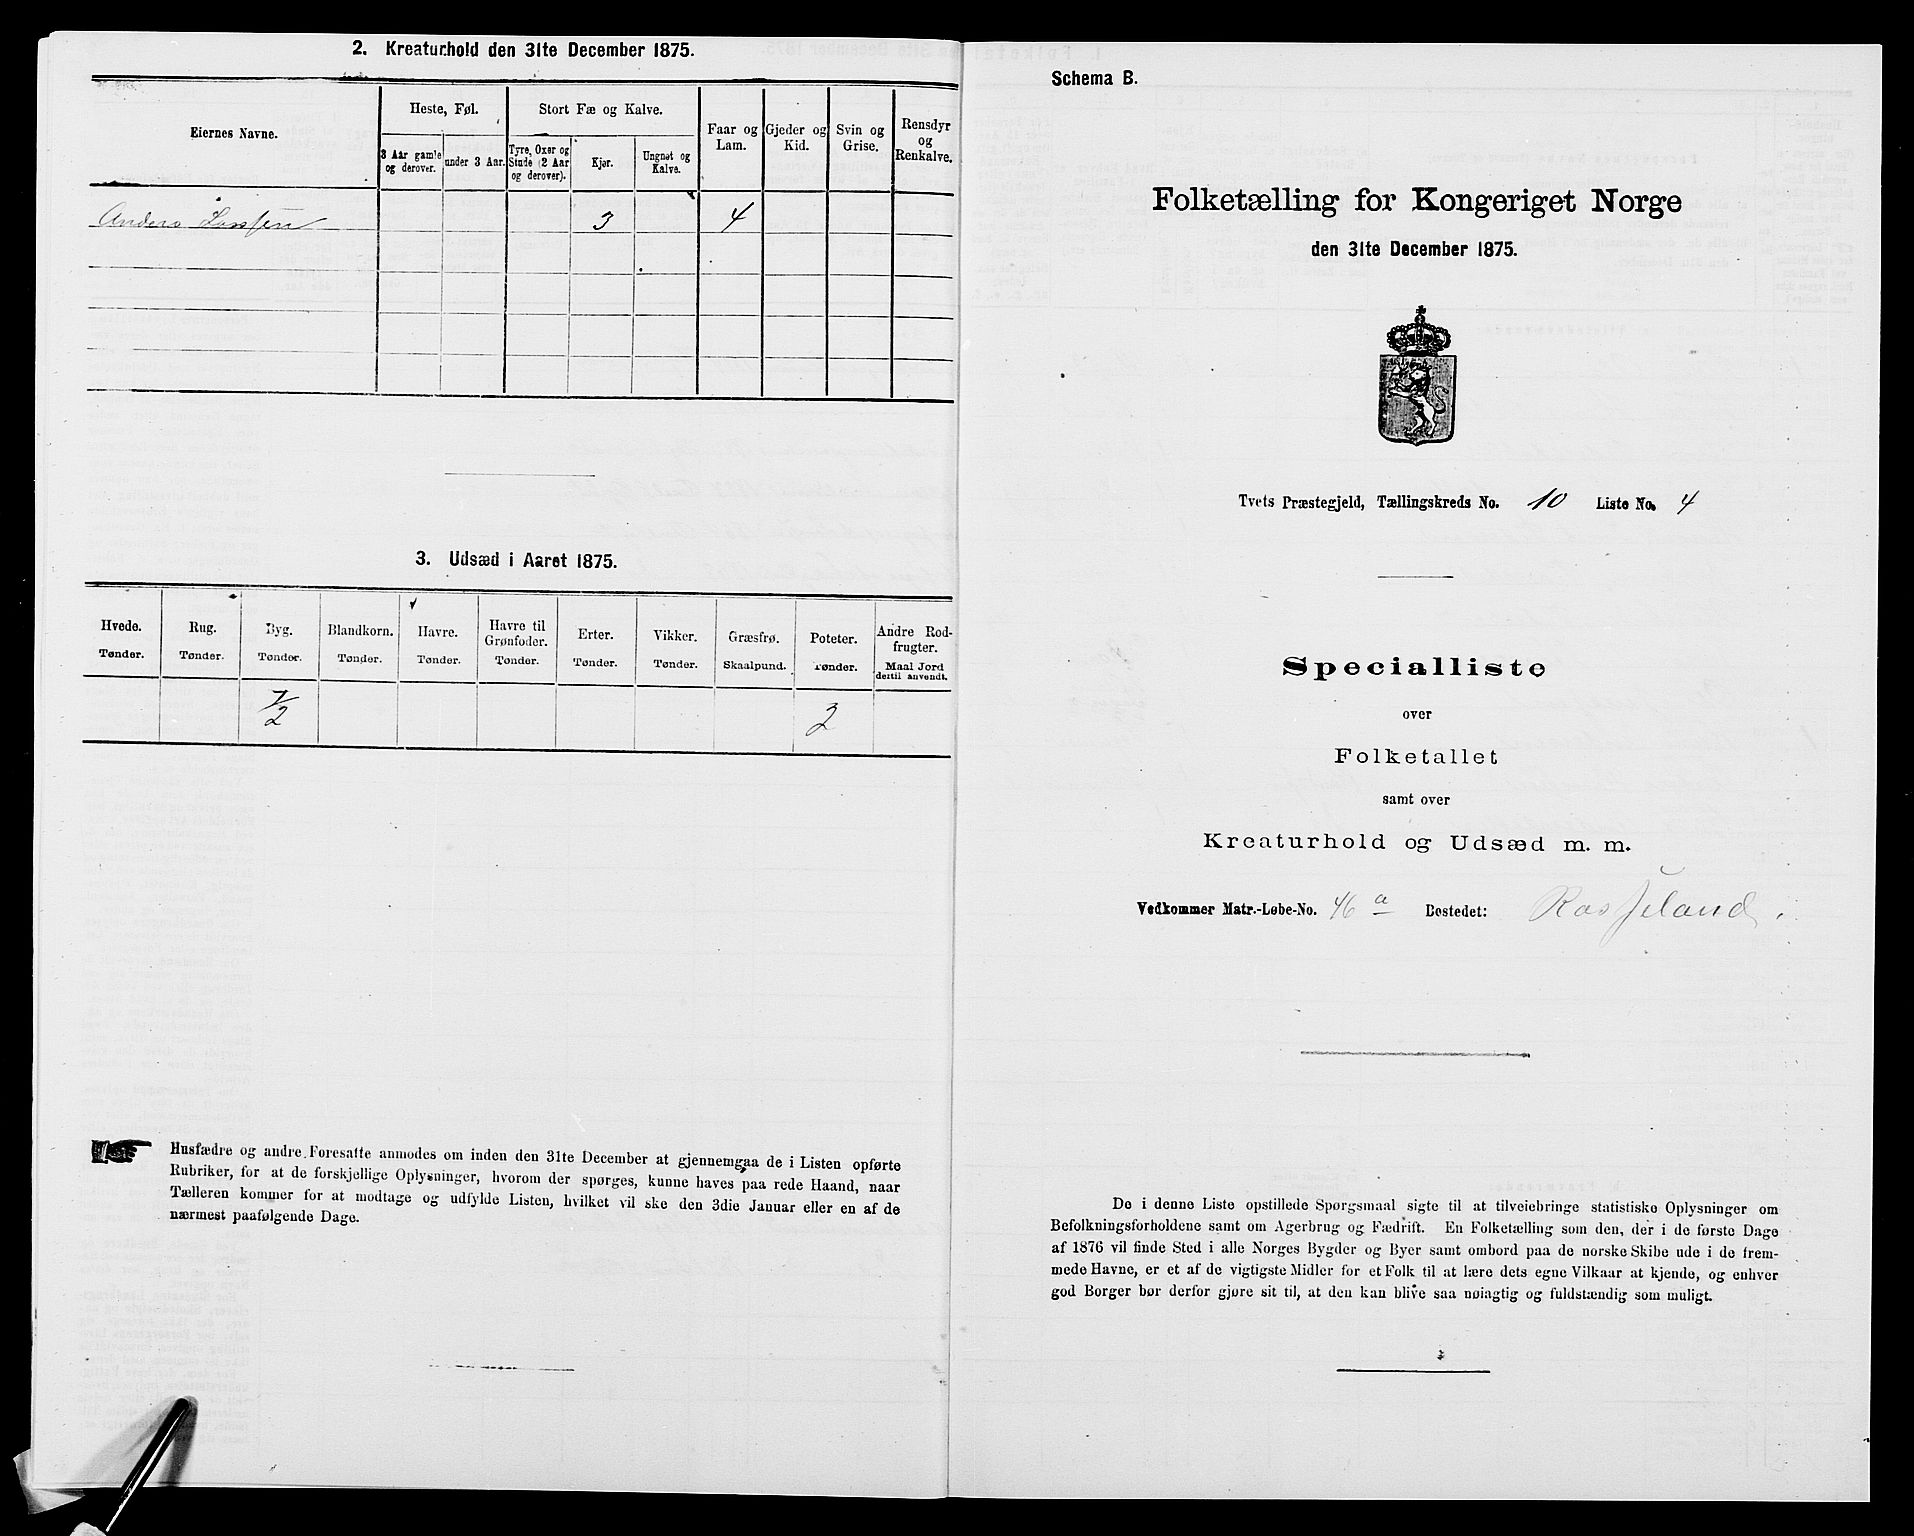 2. Kreaturhold den 31te December 1875.
Eiernes Navne.
Heste, Føl.
Stort Fæ og Kalve.
3 Aar gamle og derover.
under 3 Aar.
Tyre, Oxer og Stude (2 Aar og derover).
Kjør.
Ungnøt og Kalve.
Faar og Lam.
Gjeder og Kid.
Svin og Grise.
Rensdyr og Renkalve.
Anders 3 4
3. Udsæd i Aaret 1875.
Hvede. Tønder.
Rug. Tønder.
Byg. Tønder.
Blandkorn. Tønder.
Havre. Tønder.
Havre til Grønfoder. Tønder.
Erter. Tønder.
Vikker. Tønder.
Græsfrø. Skaalpund.
Poteter. Tønder.
Andre Rodfrugter. Maal Jord dertil anvendt.
1/2 2
Husfædre og andre Foresatte anmodes om inden den 31te December at gjennemgaa de i Listen opførte
Rubriker, for at de forskjellige Oplysninger, hvorom der spørges, kunne haves paa rede Haand, naar
Tælleren kommer for at modtage og udfylde Listen, hvilket vil ske den 3die Januar eller en af de
nærmest paafølgende Dage.
Schema B.
Folketælling for Kongeriget Norge
den 31te December 1875.
Tvets Præstegjeld, Tællingskreds No. 10 Liste No. 4
Specialliste
over
Folketallet
samt over
Kreaturhold og Udsæd m. m.
Vedkommer Matr.-Løbe-No. 46 a Bostedet: Rosseland.
De i denne Liste opstillede Spørgsmaal sigte til at tilveiebringe statistiske Oplysninger om
Befolkningsforholdene samt om Agerbrug og Fædrift. En Folketælling som den, der i de første Dage
af 1876 vil finde Sted i alle Norges Bygder og Byer samt ombord paa de norske Skibe ude i de frem-
mede Havne, er et af de vigtigste Midler for et Folk til at lære dets egne Vilkaar at kjende, og enhver
god Borger bør derfor gjøre sit til, at den kan blive saa nøiagtig og fuldstændig som muligt.